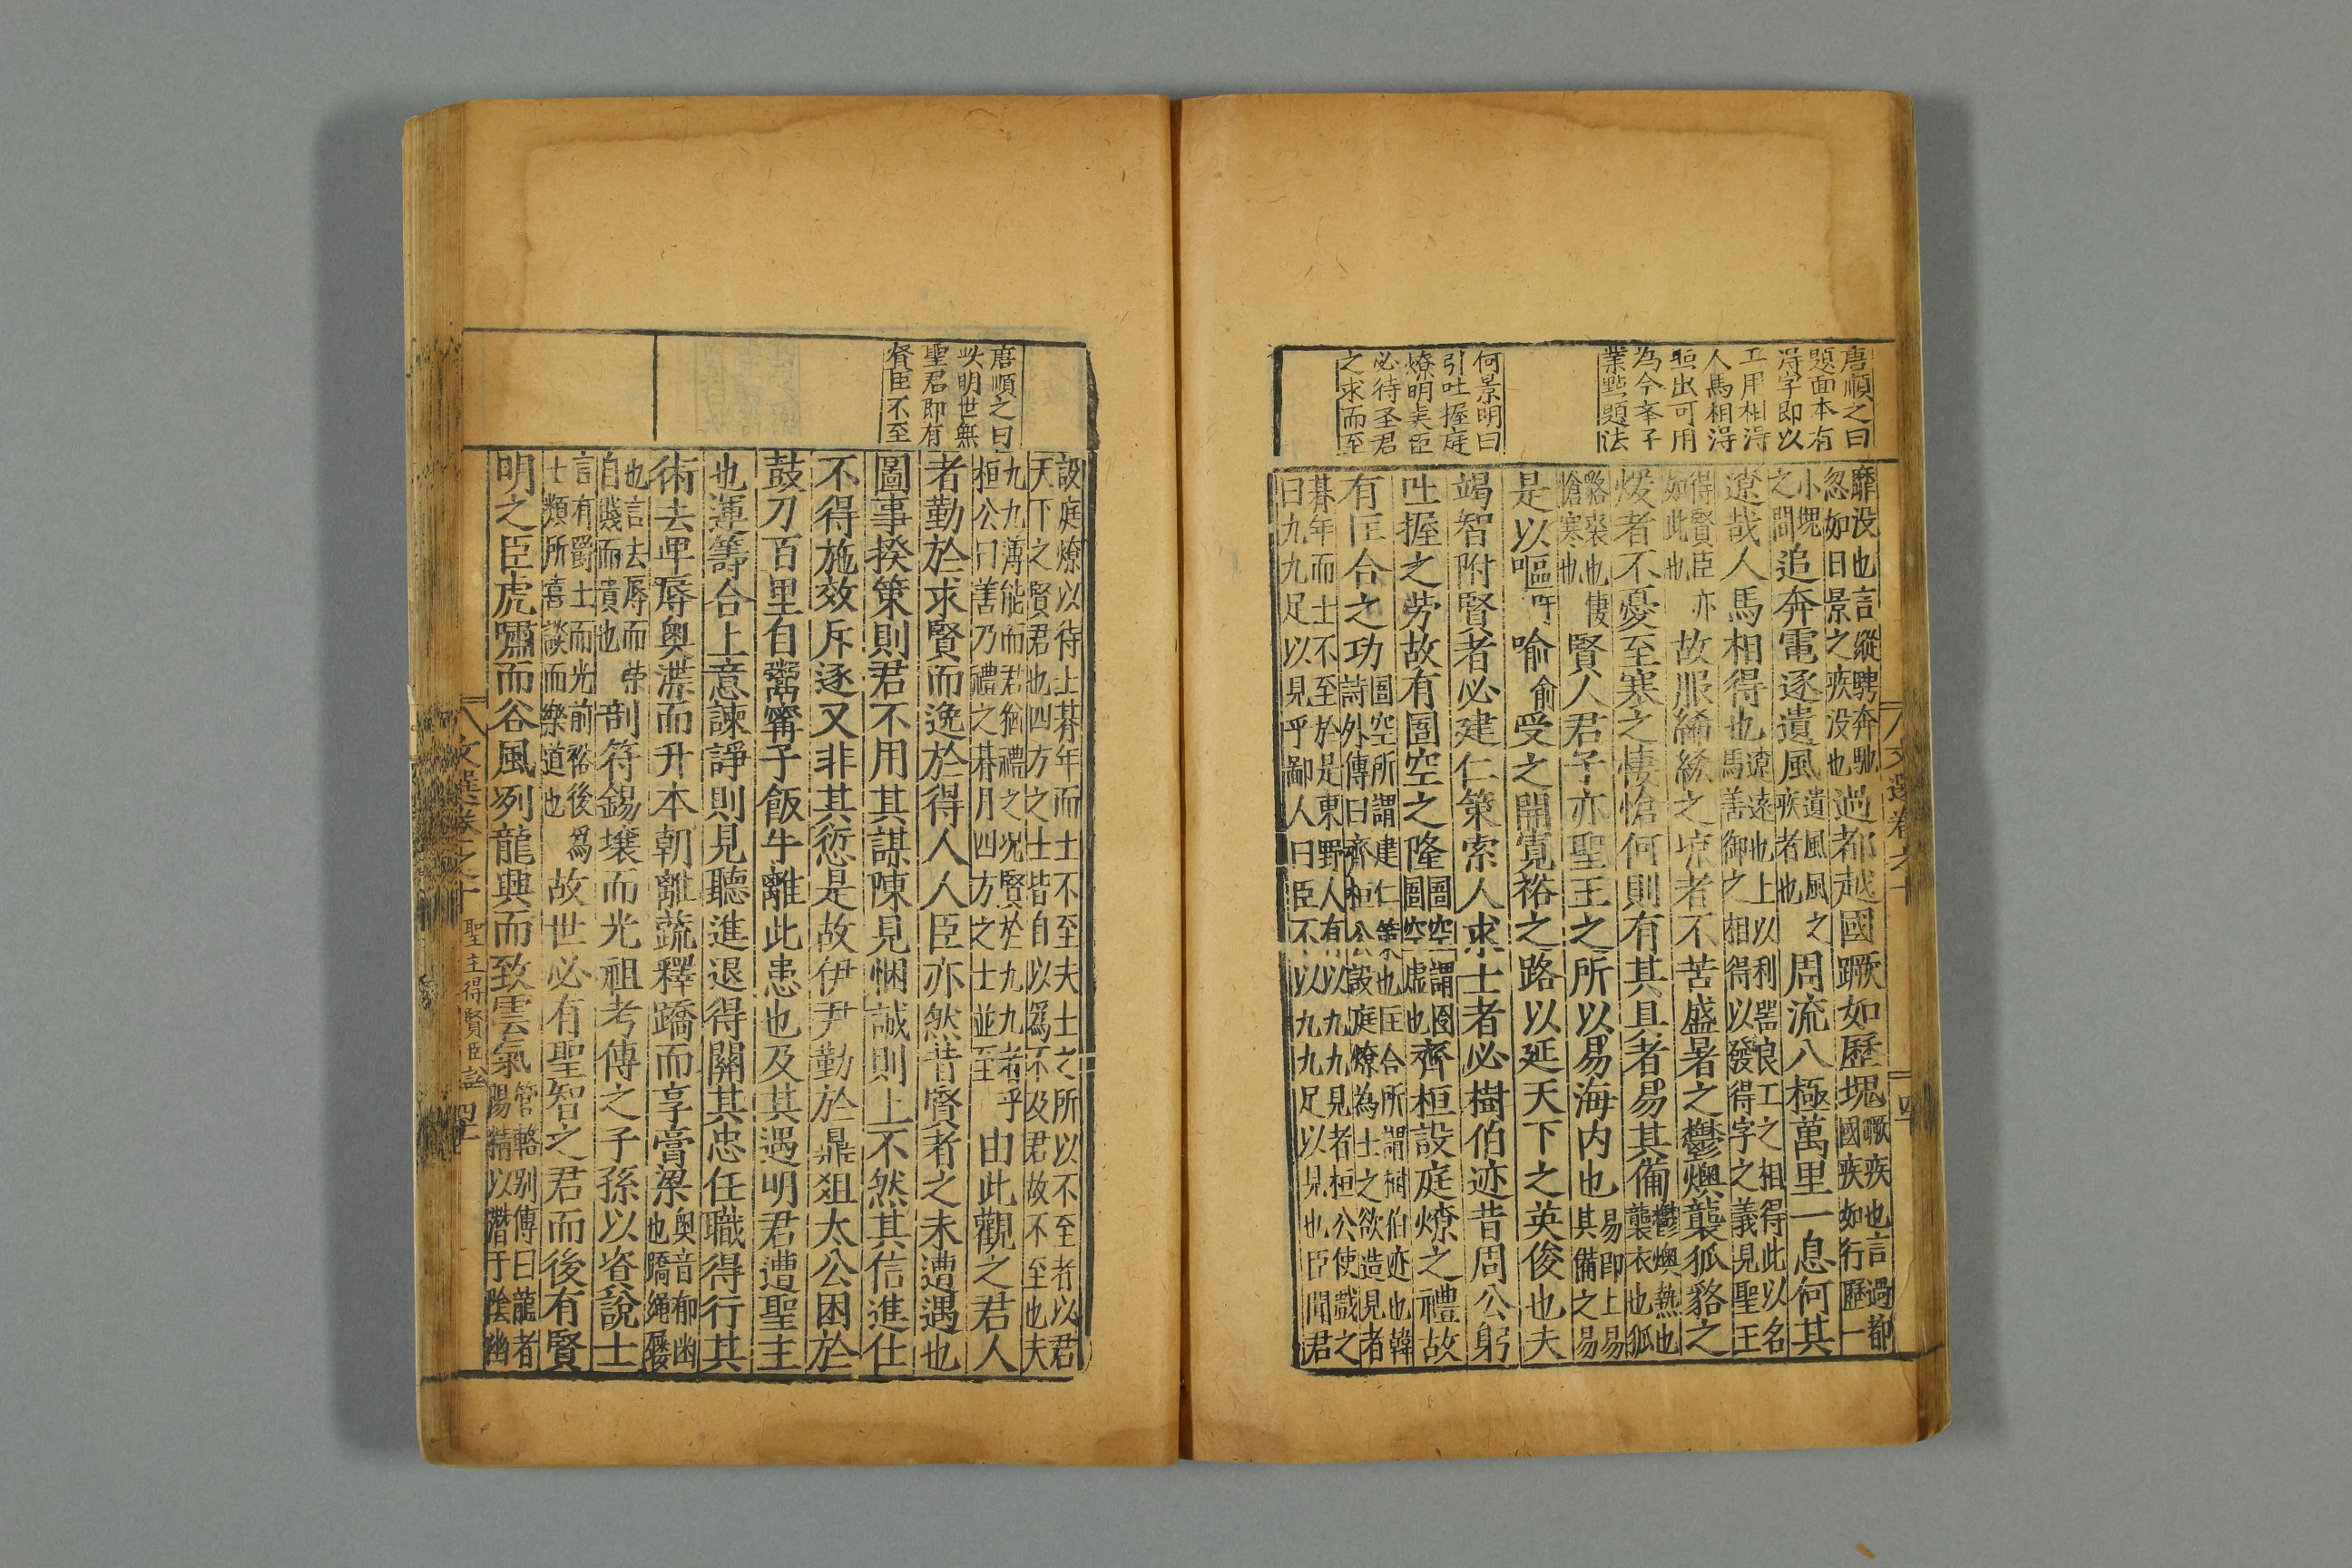 唐順之曰
題面本有
得字即以
工用相得
人馬相得
點出可用
為今举子
業點題法
何景明曰
引吐握庭
燎明矣臣
必待圣君
之求而至
靡没也言縱騁奔馳
忽如日景之疾没也過都越國蹶如歷塊蹶疾也言過都
國疾如行歷一
小塊
之間追奔電逐遺風遺風風之
疾者也周流八極萬里一息何其
遼哉人馬相得也遼遠也上以利噐良工之相得此以名
馬善御之相得以發得字之義見聖王
得賢臣亦
如此也故服絺綌之凉者不苦盛暑之鬱燠襲狐貉之
煖者不憂至寒之悽愴何則有其具者易其俻鬱燠熱也
襲衣也狐
貉裘也悽
愴寒也賢人君子亦聖王之所以易海内也易即上易
其備之易
是以嘔吁喻俞受之開寬裕之路以延天下之英俊也夫
竭智附賢者必建仁策索人求士者必樹伯迹昔周公躬
吐握之劳故有圄空之隆圄空謂囹
圄空虛也齊桓設庭燎之禮故
有匡合之功圄空所謂建仁策也匡合所謂樹伯迹也韓
詩外傳曰齊桓公設庭燎為士之欲造見者
朞年而士不至於是東野人有以九九見者桓公使戲之
曰九九足以見乎鄙人曰臣不以九九足以見也臣聞君
文選卷六十
唐順之曰
此明世無
聖君即有
賢臣不至
設庭燎以待士朞年而士不至夫士之所以不至者以君
天下之賢君也四方之士皆自以爲不及君故不至也夫
九九薄能而君猶禮之况賢於九九者乎
桓公曰善乃禮之朞月四方之士並至由此觀之君人
者勤於求賢而逸於得人人臣亦然昔賢者之未遭遇也
圖事揆策則君不用其謀陳見悃誠則上不然其信進仕
不得施效斥逐又非其愆是故伊尹勤於鼎俎太公困於
鼓刀百里自鬻甯子飯牛離此患也及其遇明君遭聖主
也運籌合上意諫諍則見聽進退得關其忠任職得行其
術去卑辱奥渫而升本朝離蔬釋蹻而享膏梁奥音郁幽
也蹻繩屨
也言去辱而荣
自賤而貴也剖符錫壤而光祖考傳之子孫以資說士
言有爵士而光前裕後爲
士類所喜談而樂道也故世必有聖智之君而後有賢
明之臣虎嘯而谷風冽龍興而致雲氣管輅别傳曰龍者
陽精以潛于陰幽
文選卷之十 聖主得賢臣訟